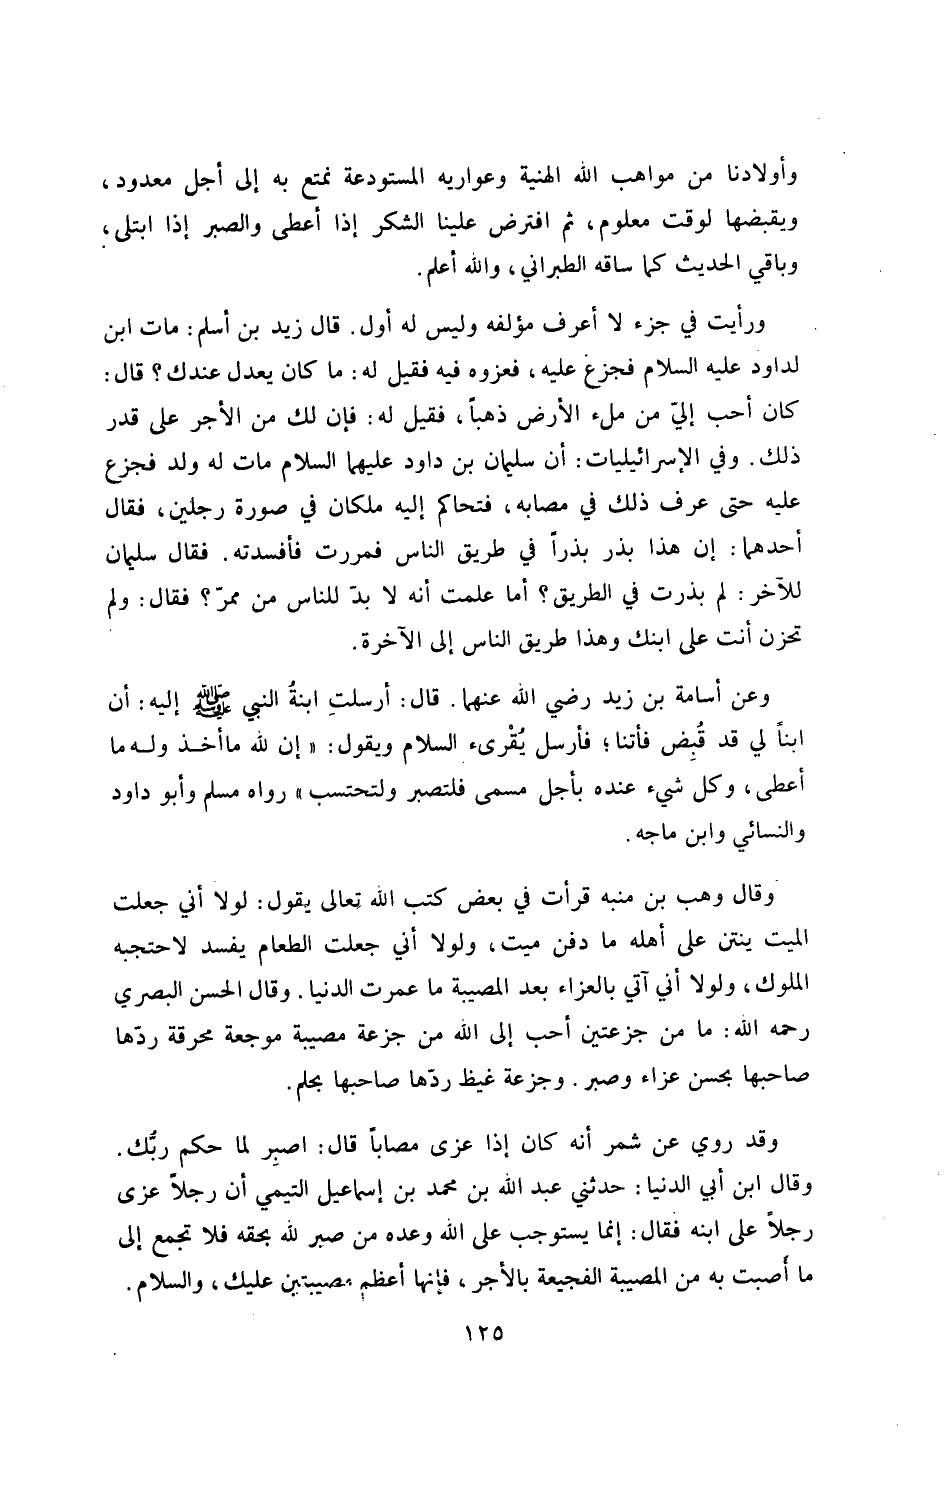 وأولادنا من مواهب الله الهنية وعواريه المستودعة نمتع به إلى أجل معدود،
ويقبضها لوقت معلوم، ثم افترض علينا الشكر إذا أعطى والصبر إذا ابتلى،
وباقي الحديث كما ساقه الطبراني، والله أعلم.
ورأيت في جزء لا أعرف مؤلفه وليس له أول. قال زيد بن أسلم: مات ابن
لداود عليه السلام فجزع عليه، فعزوه فيه فقيل له: ما كان يعدل عندك؟ قال:
كان أحب إليّ من ملء الأرض ذهباً، فقيل له: فإن لك من الأجر على قدر
ذلك. وفي الإسرائيليات: أن سليمان بن داود عليهما السلام مات له ولد فجزع
عليه حتى عرف ذلك في مصابه، فتحاكم إليه ملكان في صورة رجلين، فقال
أحدهما: إن هذا بذر بذراً في طريق الناس فمررت فأفسدته. فقال سليمان
للآخر: لم بذرت في الطريق؟ أما علمت أنه لا بدّ للناس من ممرّ؟ فقال: ولم
تحزن أنت على ابنك وهذا طريق الناس إلى الآخرة.
وعن أسامة بن زيد رضي الله عنهما. قال: أرسلتِ ابنةُ النبي ﷺ إليه: أن
ابناً لي قد قُبِض فأتنا؛ فأرسل يُقْرىء السلام ويقول: « إن لله ماأخذ وله ما
أعطى، وكل شيء عنده بأجل مسمى فلتصبر ولتحتسب » رواه مسلم وأبو داود
والنسائي وابن ماجه.
وقال وهب بن منبه قرأت في بعض كتب الله تعالى يقول: لولا أني جعلت
الميت ينتن على أهله ما دفن ميت، ولولا أني جعلت الطعام يفسد لاحتجبه
الملوك، ولولا أني آتي بالعزاء بعد المصيبة ما عمرت الدنيا. وقال الحسن البصري
رحمه الله: ما من جزعتين أحب إلى الله من جزعة مصيبة موجعة محرقة ردّها
صاحبها بحسن عزاء وصبر. وجزعة غيظ ردّها صاحبها بحلم.
وقد روي عن شمر أنه كان إذا عزى مصاباً قال: اصبِر لما حكم ربُّك.
وقال ابن أبي الدنيا: حدثني عبد الله بن محمد بن إسماعيل التيمي أن رجلاً عزى
رجلاً على ابنه فقال: إنما يستوجب على الله وعده من صبر لله بحقه فلا تجمع إلى
ما أَصبت به من المصيبة الفجيعة بالأجر، فإنها أعظم مصيبتين عليك، والسلام.
١٢٥